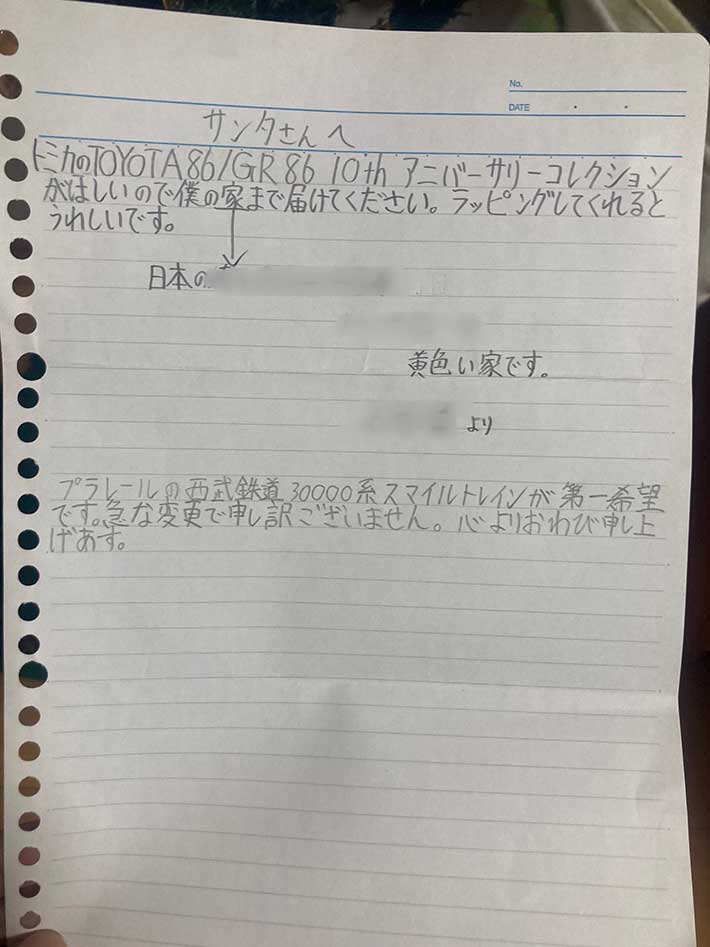 No.
DATE
サンタさんへ
トミカのTOYOTA86/GR86 10th アニバーサリーコレクション
がほしいので僕の家まで届けてください。ラッピングしてくれると
うれしいです。
日本の
黄色い家です。
より
プラレールの西武鉄道30000系スマイルトレインが第一希望
です。急な変更で申し訳ございません。心よりおわび申し上
げます。